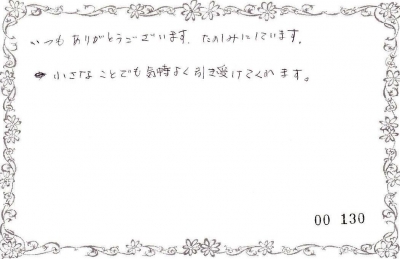 いつもありがとうございます。たのしみにしています。
小さなことでも気時よく引き受けてくれます。
00 130